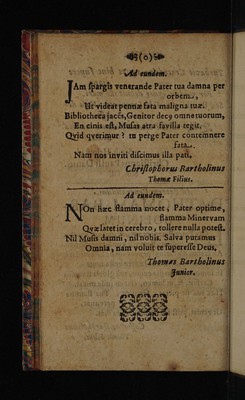 (o)
Ad eundem.
JAm spargis venerande Pater tua damna per
orbem,
Ut videat pennæ fata maligna tuæ.
Bibliotheca jacēs, Genitor decꝙ omne tuorum,
En cinis est, Musas atra favilla tegit.
Qvid qverimur? tu perge Pater contemnere
fata.
Nam nos inviti discimus illa pati.
Christophorus Bartholinus
Thomæ Filius.
Ad eundem.
NOn hæc flamma nocet, Pater optime,
flamma Minervam
Qvæ latet in cerebro, tollere nulla potest.
Nil Musis damni, nil nobis. Salva putamus
Omnia, nam voluit te superesse Deus,
Thomas Bartholinus
Junior.